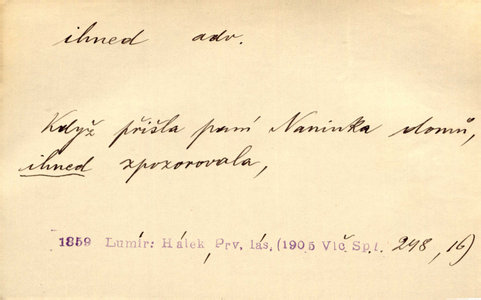 ihned adv.
Když přišla paní Naninka domů,
ihned zpozorovala,
1859 Lumír: Hálek, Prv. lás. (1905 Vlč. Sp. I. 248, 16)